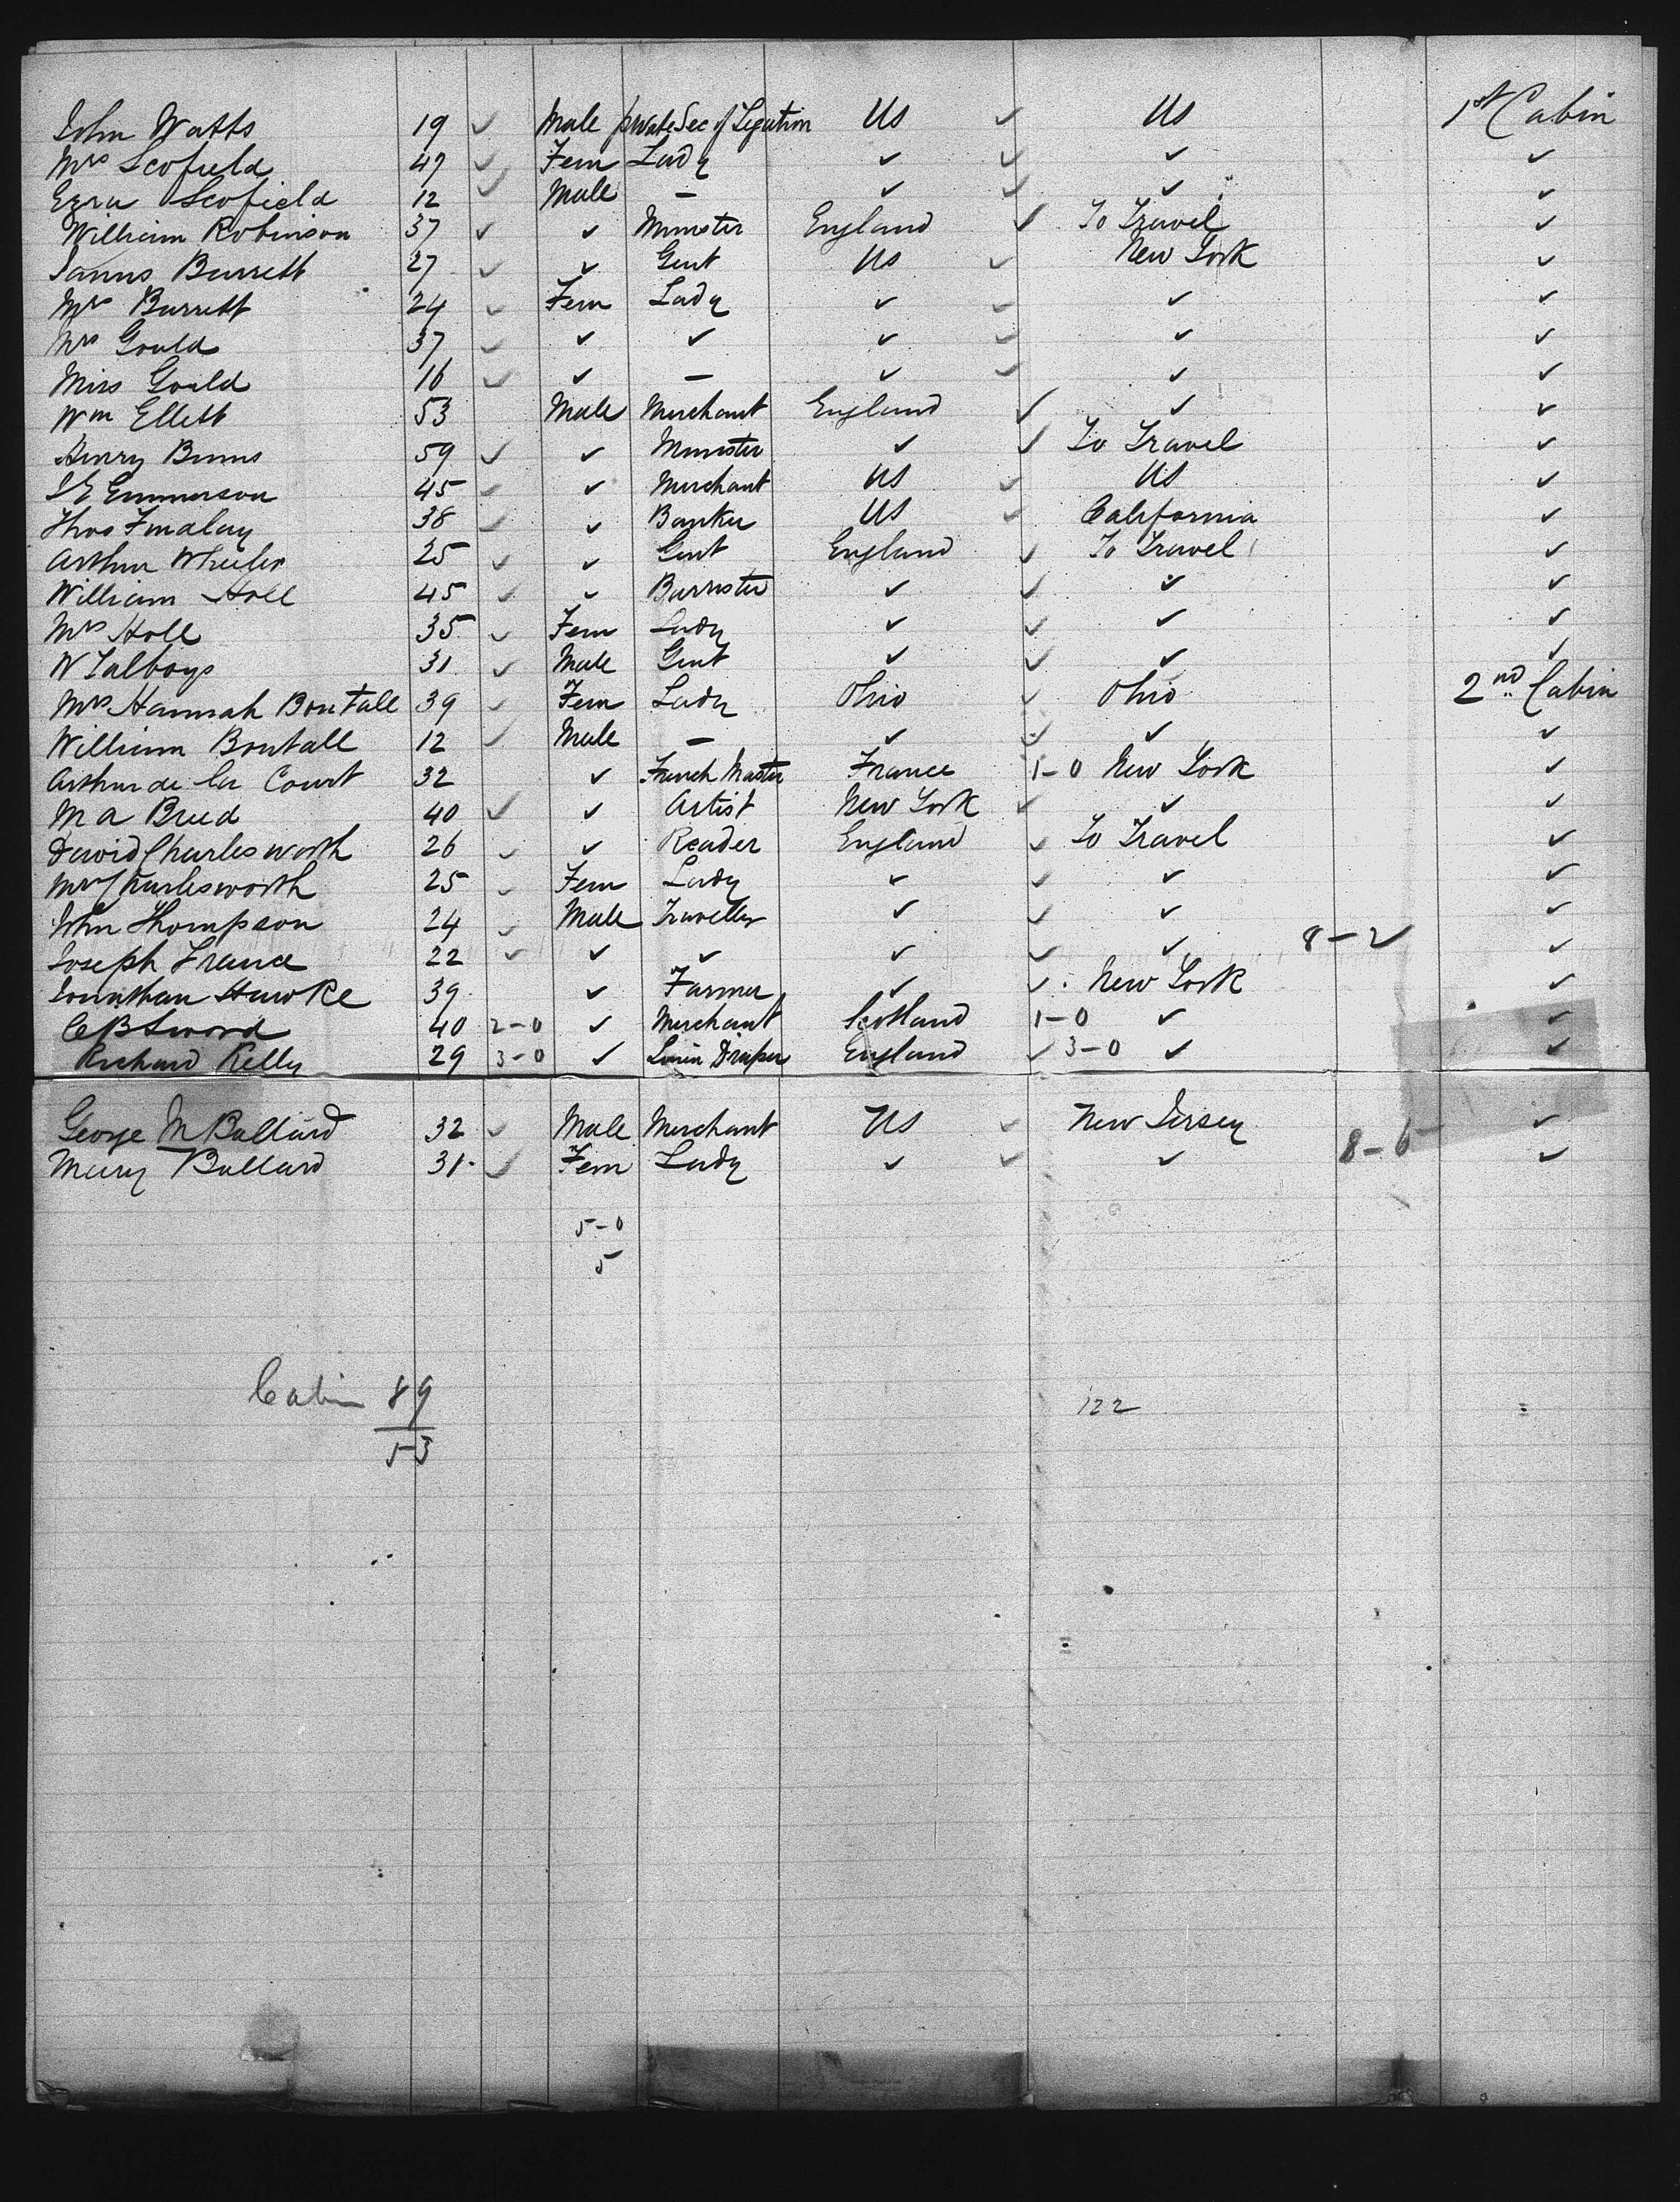 John Watts 19 ✓ Male private Sec of Legation US ✓ US 1st Cabin
Mrs Scofield 47 ✓ Fem Lady ✓ ✓ ✓ ✓
Ezra Scofield 12 ✓ Male — ✓ ✓ ✓ ✓
William Robinson 37 ✓ ✓ Minister England ✓ To Travel ✓
James Barrett 27 ✓ ✓ Gent US ✓ New York ✓
Mrs Barrett 24 ✓ Fem Lady ✓ ✓ ✓ ✓
Mrs Gould 37 ✓ ✓ ✓ ✓ ✓ ✓ ✓
Miss Gould 16 ✓ ✓ — ✓ ✓ ✓ ✓
Wm Ellett 53 Male Merchant England ✓ ✓ ✓
Henry Binns 59 ✓ ✓ Minister ✓ ✓ To Travel ✓
Emmerson 45 ✓ ✓ Merchant US ✓ US ✓
Thos Findlay 38 ✓ ✓ Banker US ✓ California ✓
Arthur Wheeler 25 ✓ ✓ Gent England ✓ To Travel ✓
William Holl 45 ✓ ✓ Barrister ✓ ✓ ✓ ✓
Mrs Holl 35 ✓ Fem Lady ✓ ✓ ✓ ✓
W Talboys 31 ✓ Male Gent ✓ ✓ ✓ ✓
Mrs Hannah Boutall 39 ✓ Fem Lady Ohio ✓ Ohio 2nd Cabin
William Boutall 12 ✓ Male — ✓ ✓ ✓ ✓
Arthur de la Court 32 ✓ French Master France 1-0 New York ✓
M A Breed 40 ✓ ✓ Artist New York ✓ ✓ ✓
David Charlesworth 26 ✓ ✓ Reader England ✓ To Travel ✓
Mrs Charlesworth 25 ✓ Fem Lady ✓ ✓ ✓ ✓
John Thompson 24 ✓ Male Traveller ✓ ✓ ✓ ✓
Joseph France 22 ✓ ✓ ✓ ✓ ✓ ✓ 8-2 ✓
Jonathan Hawke 39 ✓ Farmer ✓ ✓ New York ✓
C B Sword 40 2-0 ✓ Merchant Scotland 1-0 ✓ ✓
Richard Kelly 29 3-0 ✓ Linen Draper England ✓ 3-0 ✓ ✓
George M Ballard 32 ✓ Male Merchant US ✓ New Jersey ✓
Mary Ballard 31 ✓ Fem Lady ✓ ✓ ✓ 8-6 ✓
5-0
5
Cabin 89
122
53